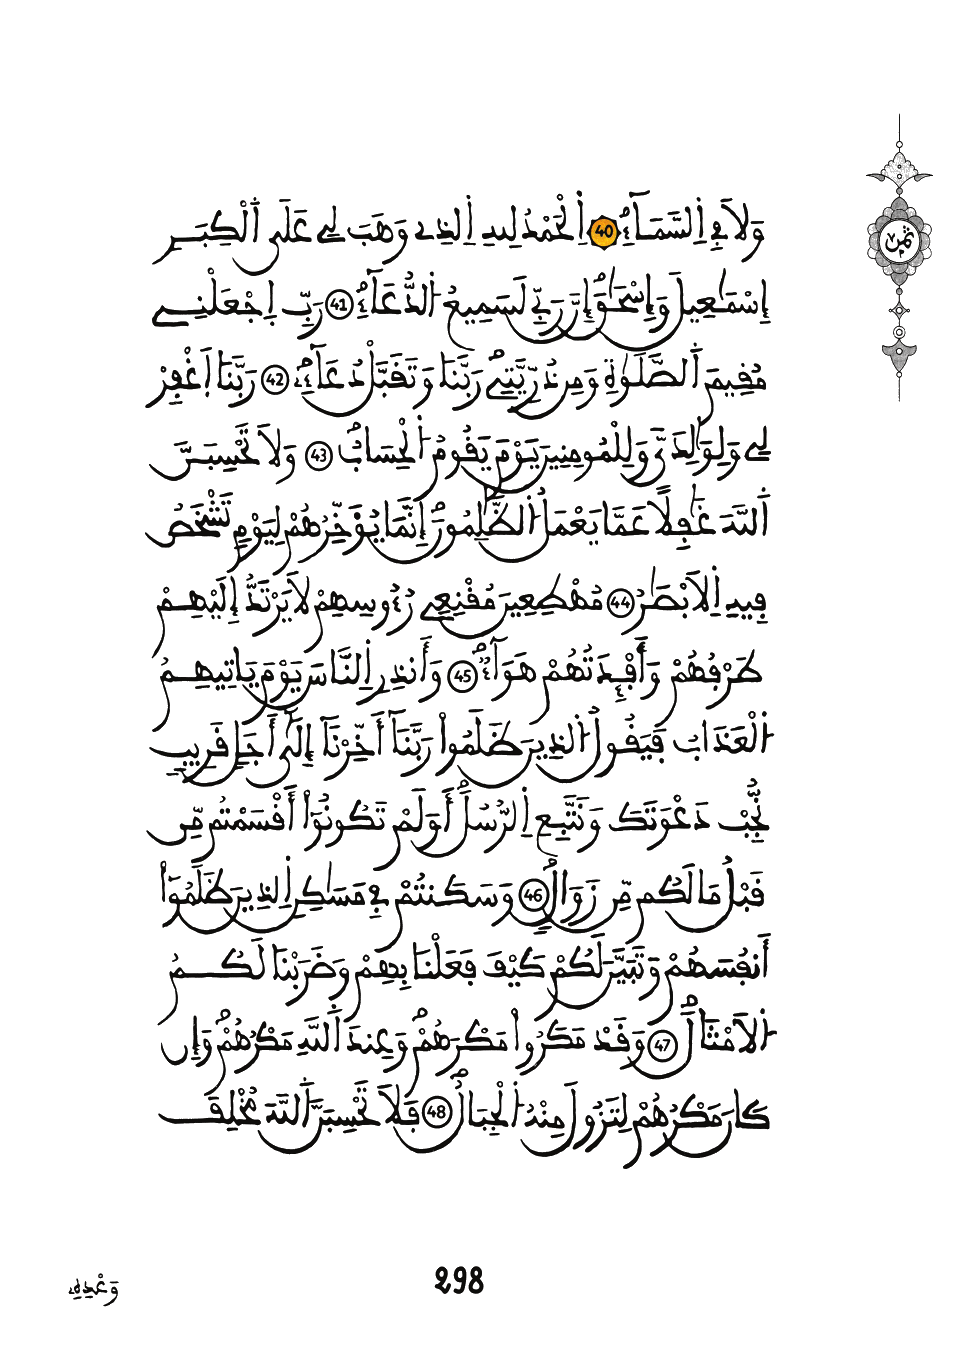 ثمن
وَلَا فِے اِ۬لسَّمَآءِۖ 40 اِ۬لْحَمْدُ لِلهِ اِ۬لذِے وَهَبَ لِے عَلَى اَ۬لْكِبَرِ
إِسْمَٰعِيلَ وَإِسْحَٰقَۖ إِنَّ رَبِّے لَسَمِيعُ اُ۬لدُّعَآءِۖ 41 رَبِّ اِ۪جْعَلْنِے
مُقِيمَ اَ۬لصَّلَوٰةِ وَمِن ذُرِّيَّتِےۖ رَبَّنَا وَتَقَبَّلْ دُعَآءِۖ 42 رَبَّنَا اَ۪غْفِرْ
لِے وَلِوَٰلِدَيَّ وَلِلْمُومِنِينَ يَوْمَ يَقُومُ اُ۬لْحِسَابُۖ 43 وَلَا تَحْسِبَنَّ
اَ۬للَّهَ غَٰفِلاً عَمَّا يَعْمَلُ اُ۬لظَّٰلِمُونَۖ إِنَّمَا يُؤَخِّرُهُمْ لِيَوْمٖ تَشْخَصُ
فِيهِ اِ۬لَابْصَٰرُ 44 مُهْطِعِينَ مُقْنِعِے رُءُوسِهِمْ لَا يَرْتَدُّ إِلَيْهِمْ
طَرْفُهُمْ وَأَفْـِٕدَتُهُمْ هَوَآءٞۖ 45 وَأَنذِرِ اِ۬لنَّاسَ يَوْمَ يَاتِيهِمُ
اُ۬لْعَذَابُ فَيَقُولُ اُ۬لذِينَ ظَلَمُواْ رَبَّنَآ أَخِّرْنَآ إِلَىٰٓ أَجَلٖ قَرِيبٖ
نُّجِبْ دَعْوَتَكَ وَنَتَّبِعِ اِ۬لرُّسُلَۖ أَوَلَمْ تَكُونُوٓاْ أَقْسَمْتُم مِّن
قَبْلُ مَا لَكُم مِّن زَوَالٖۖ 46 وَسَكَنتُمْ فِے مَسَٰكِنِ اِ۬لذِينَ ظَلَمُوٓاْ
أَنفُسَهُمْ وَتَبَيَّنَ لَكُمْ كَيْفَ فَعَلْنَا بِهِمْ وَضَرَبْنَا لَكُمُ
اُ۬لَامْثَالَۖ 47 وَقَدْ مَكَرُواْ مَكْرَهُمْۖ وَعِندَ اَ۬للَّهِ مَكْرُهُمْۖ وَإِن
كَانَ مَكْرُهُمْ لِتَزُولَ مِنْهُ اُ۬لْجِبَالُۖ 48 فَلَا تَحْسِبَنَّ اَ۬للَّهَ مُخْلِفَ
وَعْدِهِۦ
298